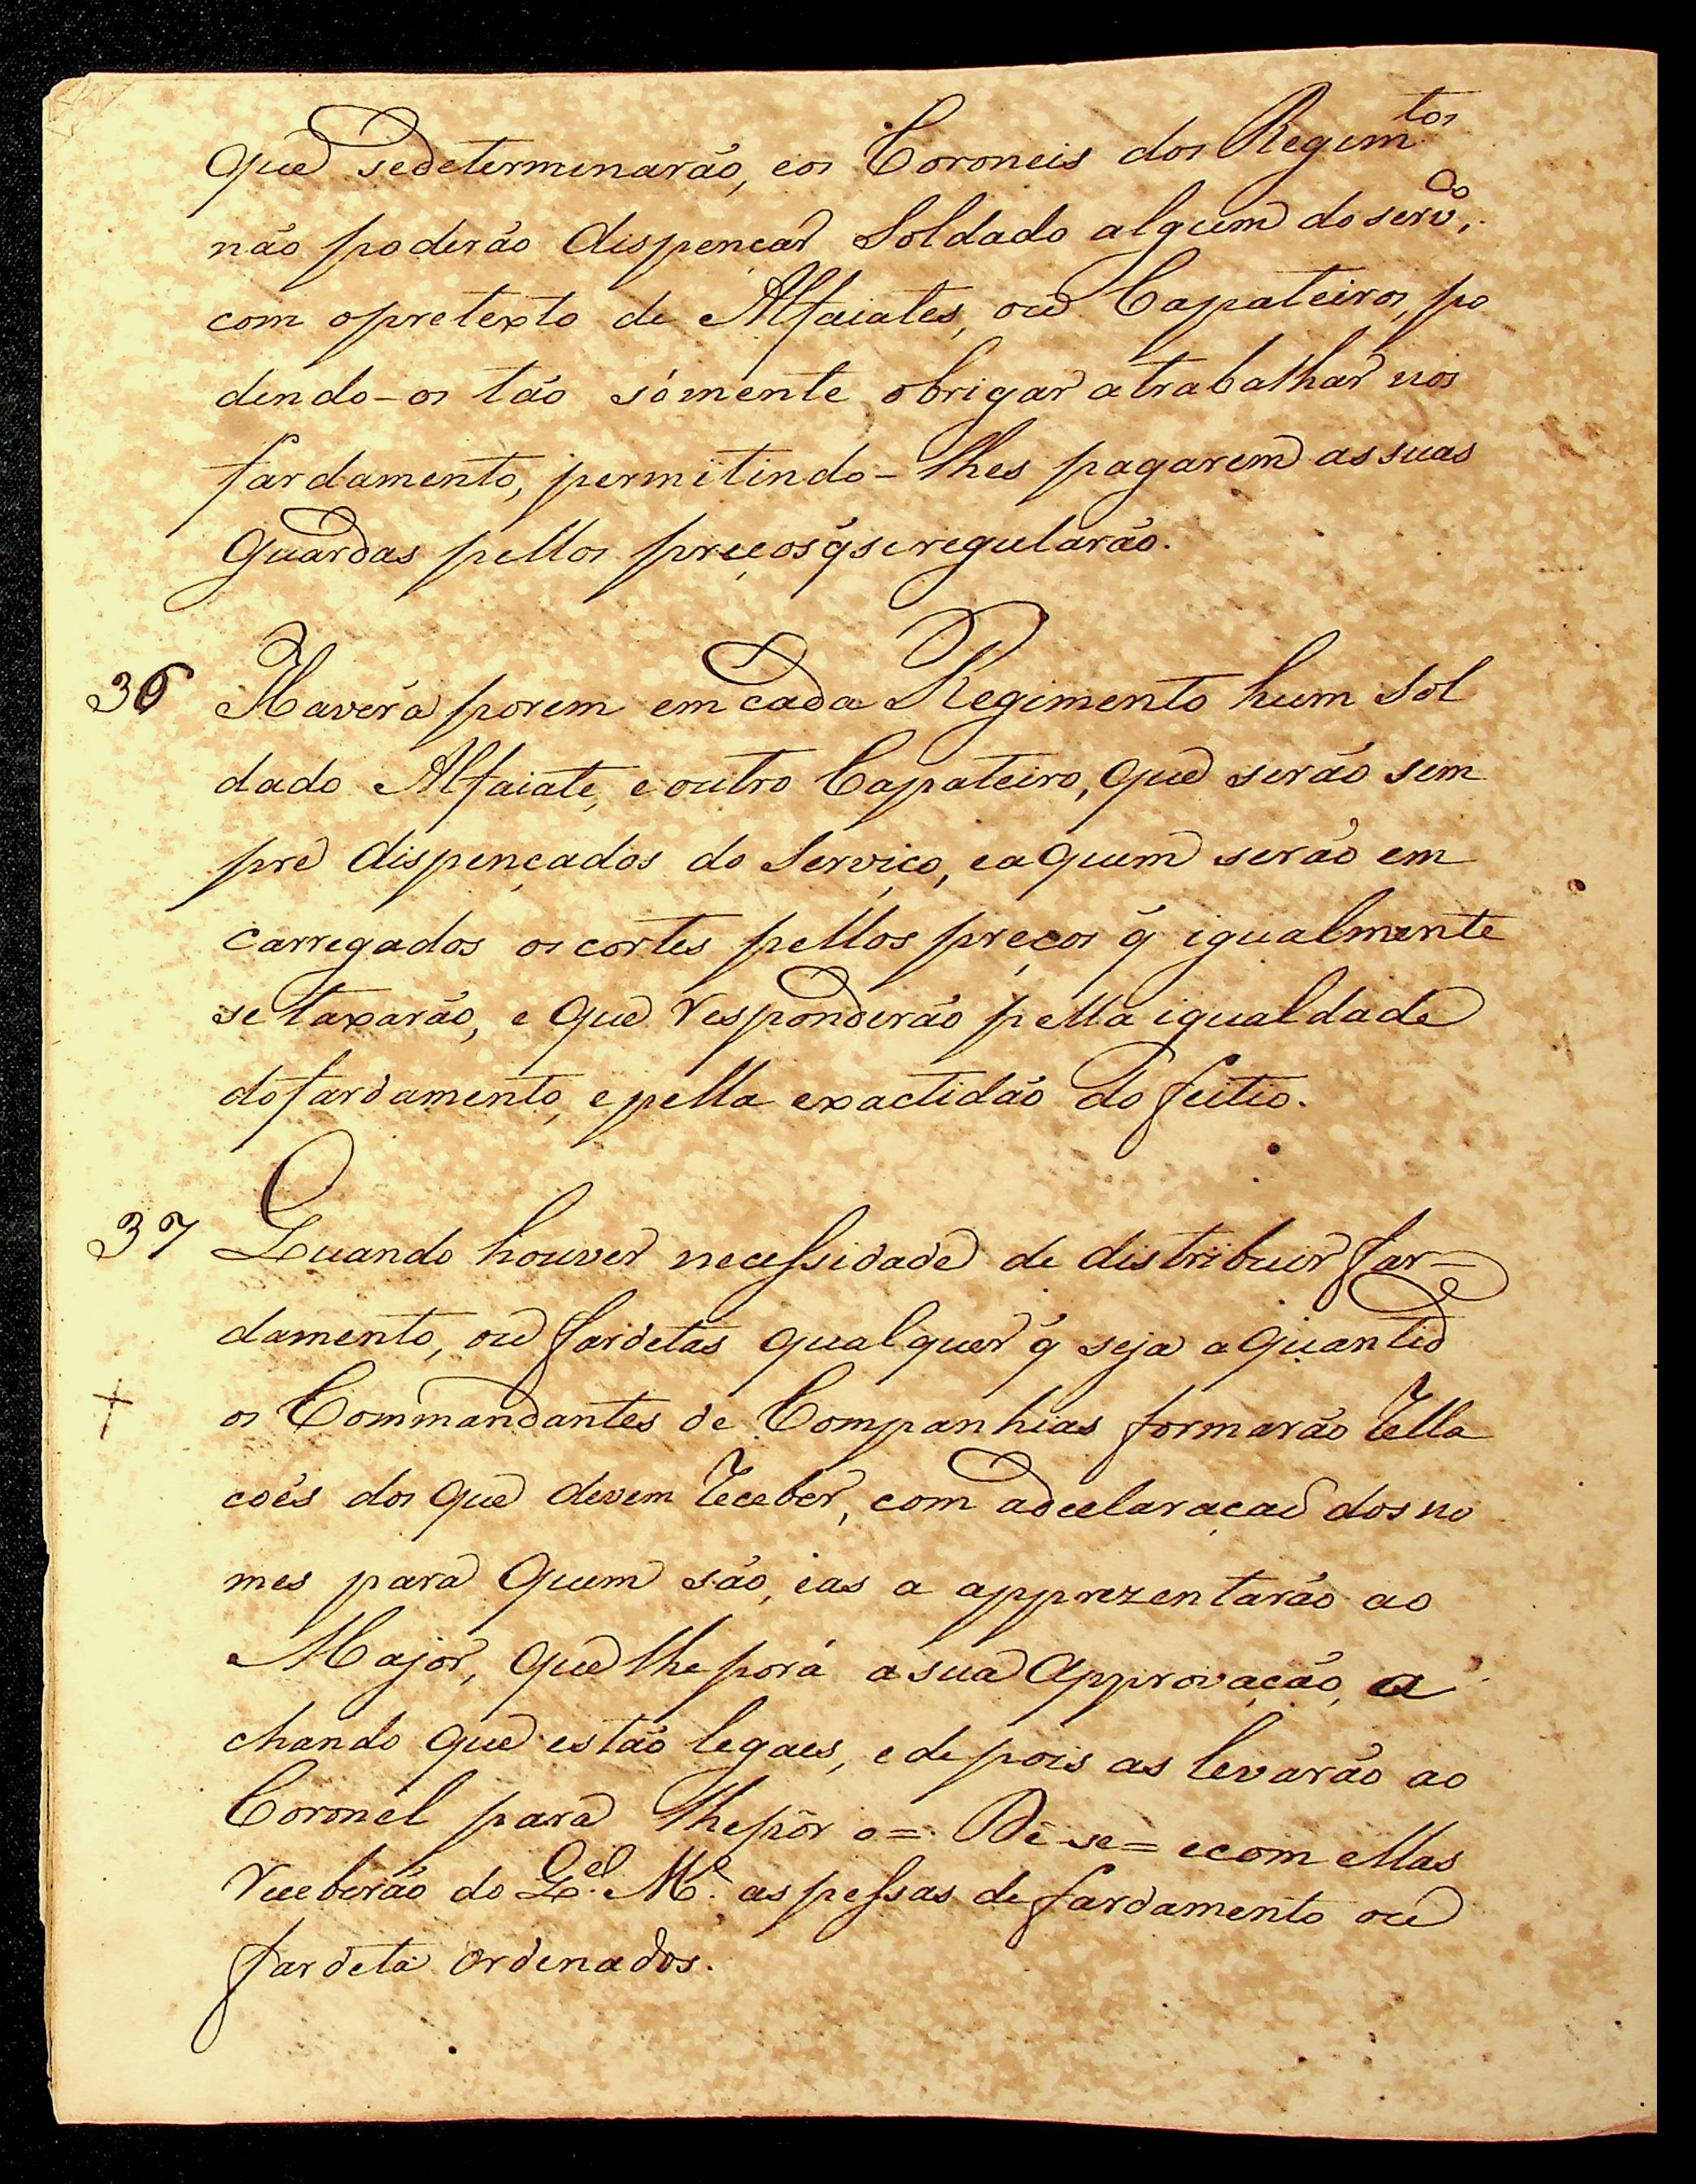 que sedeterminarão, eos Coroneis dos Regim.tos
não poderão dispençar Soldado algum do serv.co,
com opretexto de Alfaiates, ou Çapateiros, po
dendo-os tão sómente obrigar atrabalhar nos
fardamento, permitindo-lhes pagarem as suas
Guardas pellos preços q̃ se regularão.
36 Haverá porem em cada Regimento hum Sol
dado Alfaiate, e outro Çapateiro, que serão sem
pre dispençados do Serviço, e aquem serão em
carregados os cortes pellos preços q̃ igualmente
se taxarão, e que responderão pella igualdade
do fardamento, e pella exactidão do feitio.
37 Quando houver necessidade de distribuir far=
damento, ou fardetas qualquer q̃ seja a quantid.e
+ os Commandantes de Companhias formarão rella
coẽs dos que devem receber, com adeclaraçaõ dos no
mes para quem são, eas a apprezentarão ao
Major, que lhe porá a sua approvação, a
chando que estão legaes, e depois as levarão ao
Coronel para lhe pôr o = Dê-se = e com ellas
receberão do Q.el M.e as pessas de fardamento ou
fardeta ordenados.